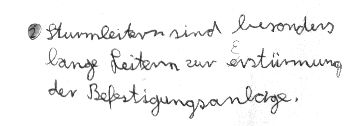 Sturmleitern sind besonders
lange Leitern zur Erstürmung
der Befestigungsanlage.